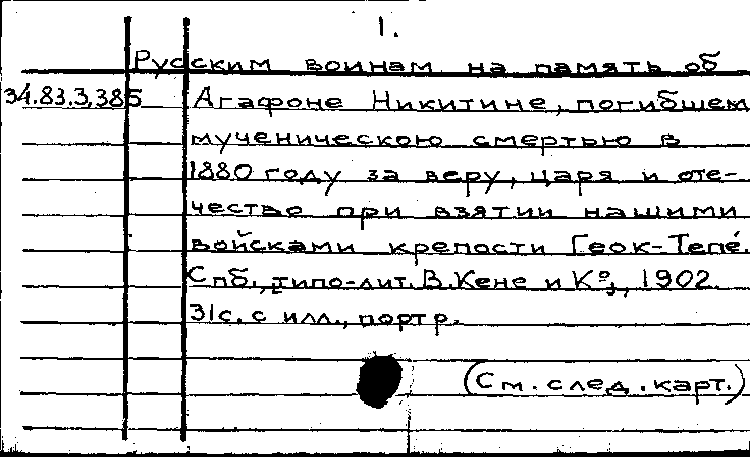 1.
Русским воинам на память об
34.83.3.385 Агафоне Никитине, погибшем
мученическою смертью в
1880 году за веру, царя и оте-
чество при взятии нашими
войсками крепости Геок-Тепе́.
Спб., типо-лит. В. Кене и К°, 1902.
31с. с илл., портр.
(См. след. карт.)